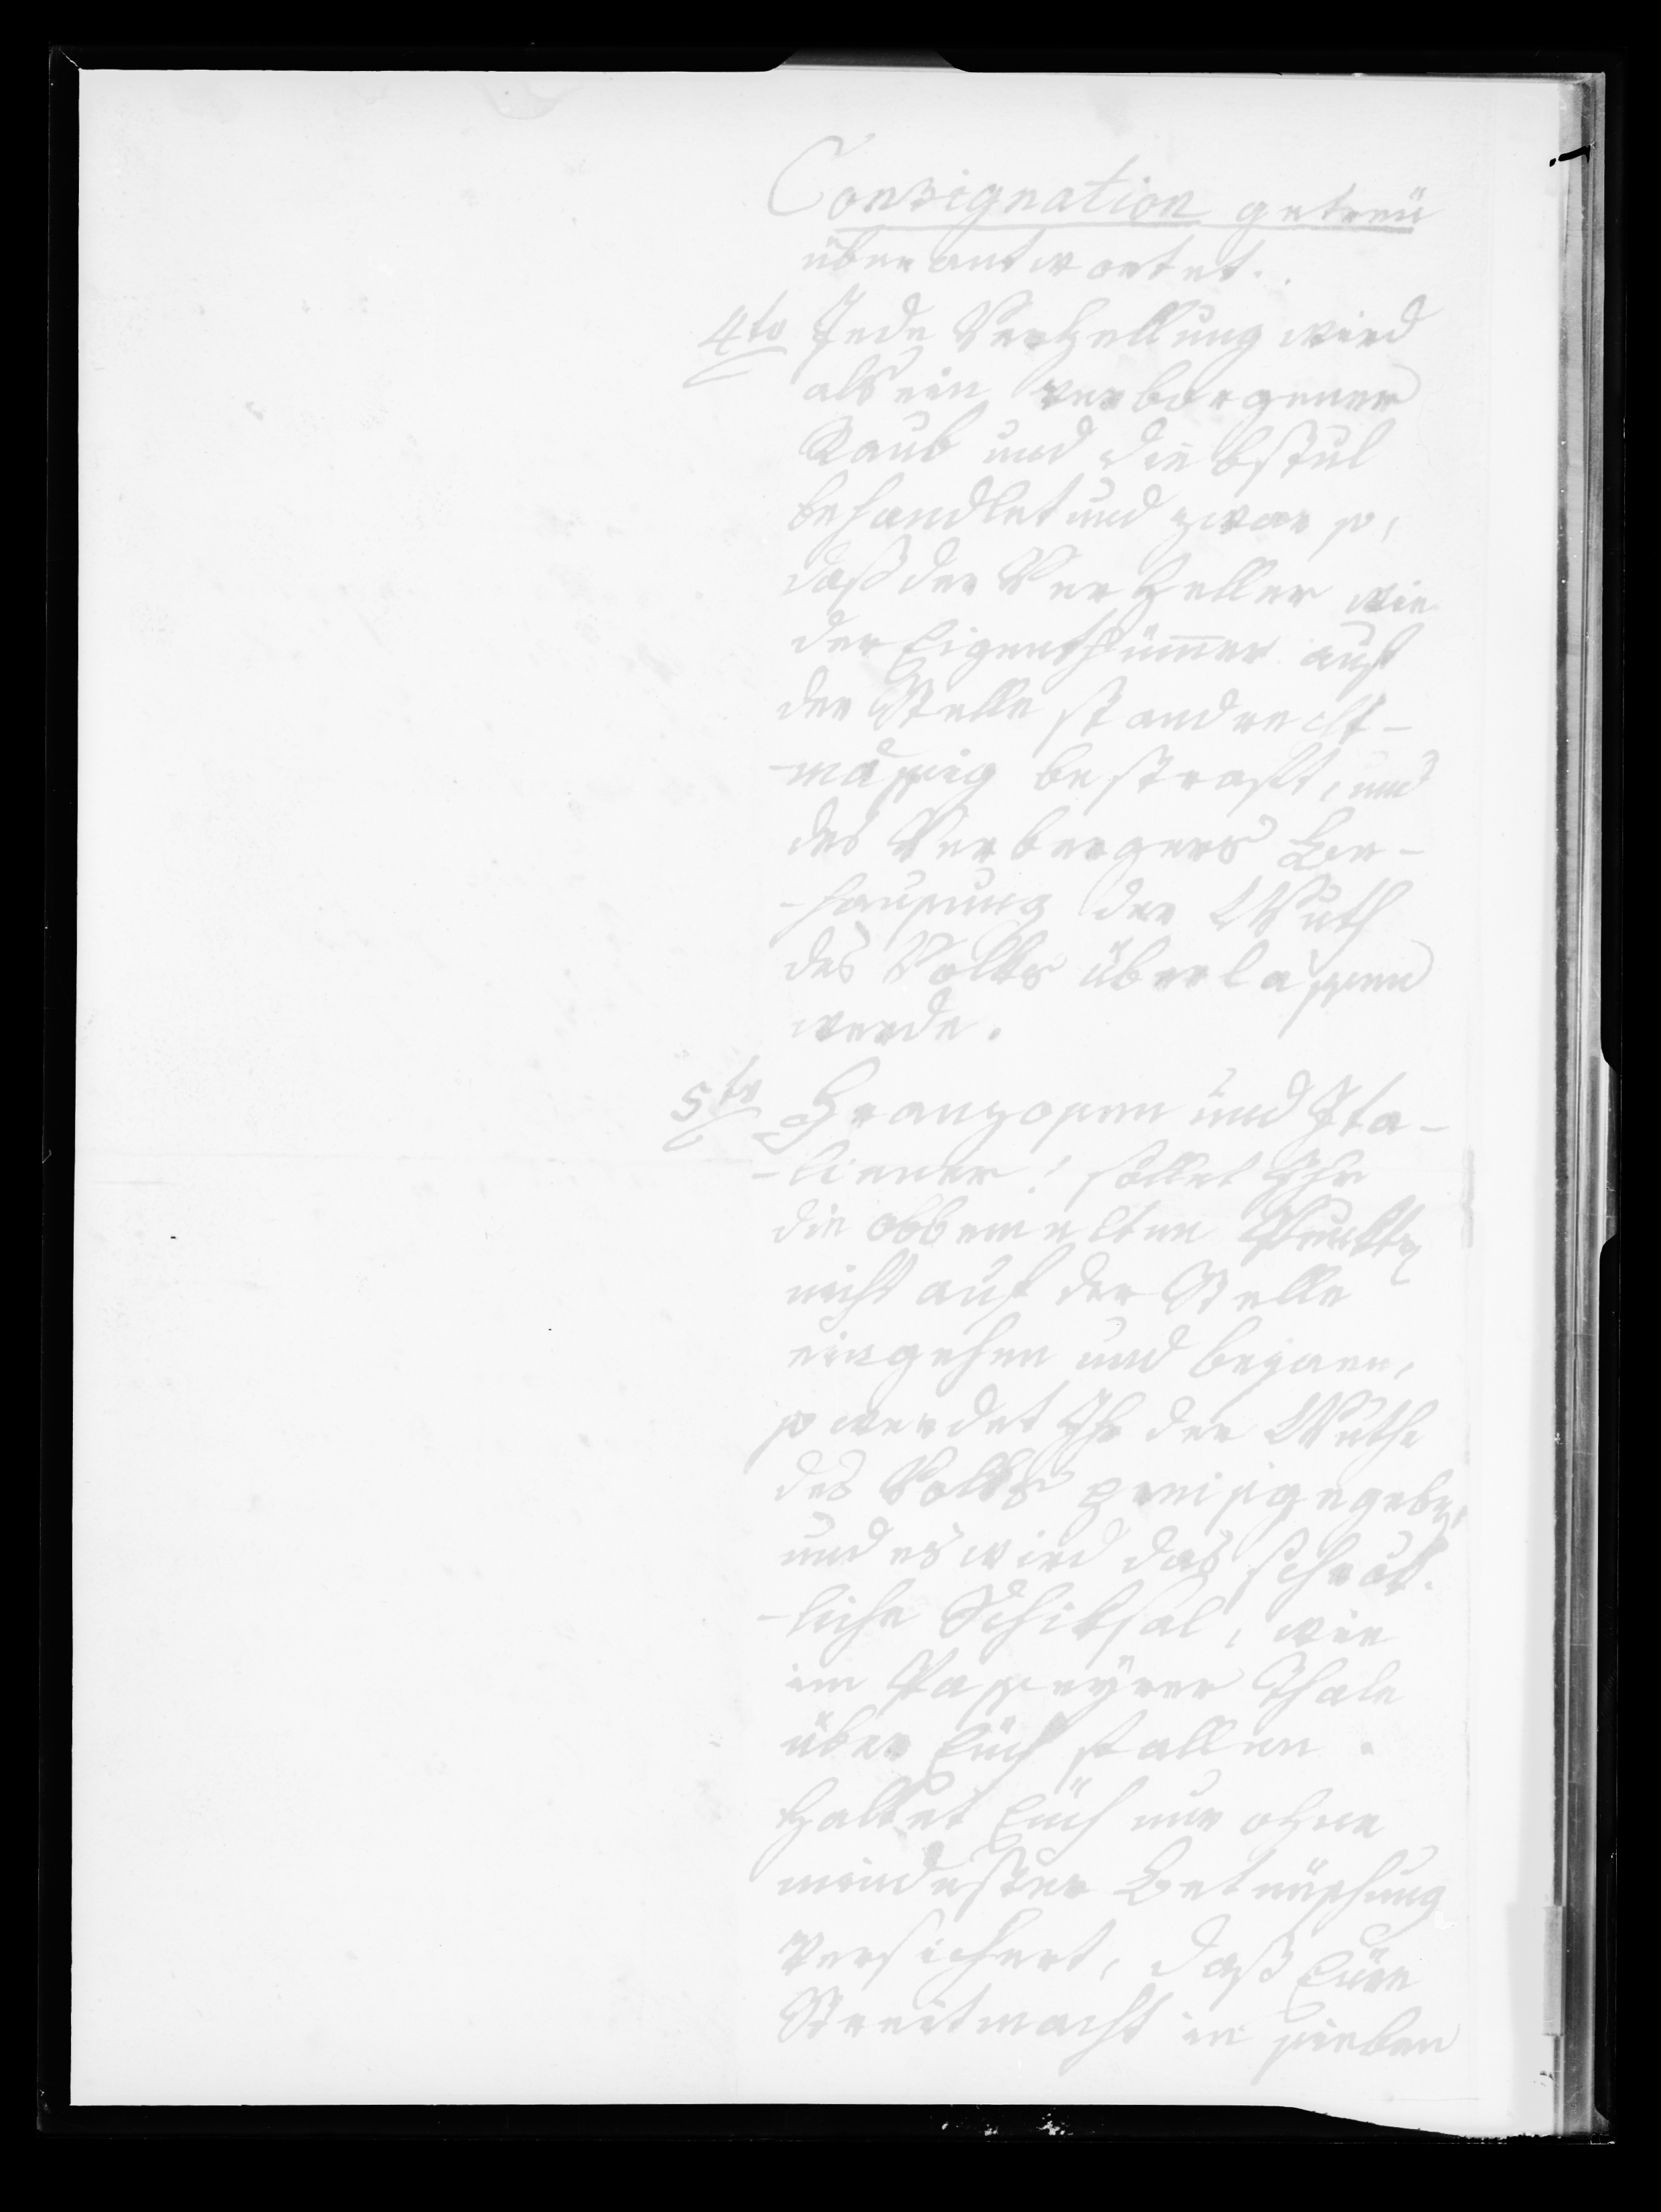 Consignation getreü
überantwortet.
4to Jede Verhellung wird
als ein verborgener
Raub und diebstul
behandlet und zwar so,
daß der Verheller wie
der Eigenthümmer auf
der Stelle standrecht-
-mässig bestraft, und
des Verbergers Be-
-hausung der Wuth
des Volks überlassen
werde.
5to Franzosen und Ita-
-liener! sollet Ihr
die obbemelten Punkte
nicht auf der Stelle
eingehen und bejaen,
so werdet Ihr der Wuthe
des Volks preisgegeben,
und es wird das schröt-
-liche Schiksal, wie
im Passeyrer Thale
über Eüch fallen.
Haltet Eüch nur ohne
mindester
versichert, daß Eüre
Streitmacht in sieben